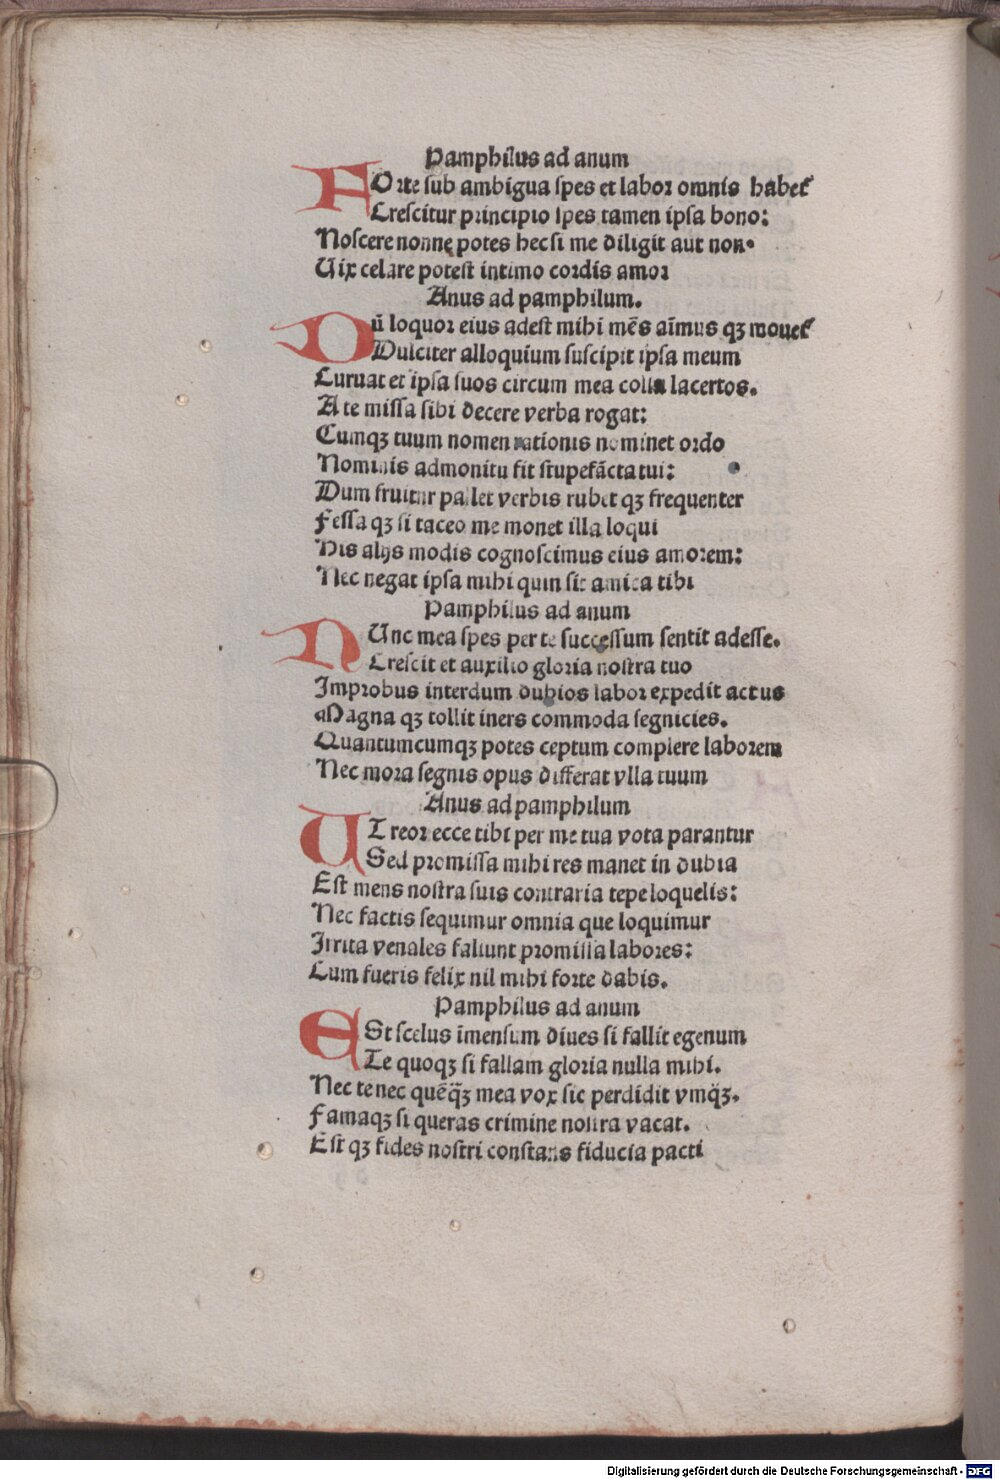 Pamphilus ad anum
FOrte sub ambigua spes et labor omnis habet᷑
Crescitur principio spes tamen ipsa bono:
Noscere nonnę potes hec si me diligit aut non.
Uix celare potest intimo cordis amor
Anus ad pamphilum.
Dū loquor eius adest mihi mēs aīmus qꝫ mouet᷑
Dulciter alloquium suscipit ipsa meum
Curuat et ipsa suos circum mea colla lacertos.
A te missa sibi dicere verba rogat:
Cumqꝫ tuum nomen rationis nominet ordo
Nominis admonitu fit stupefācta tui:
Dum fruitur pallet verbis rubet qꝫ frequenter
Fessa qꝫ si taceo me monet illa loqui
His alijs modis cognoscimus eius amorem:
Nec negat ipsa mihi quin sit amica tibi
Pamphilus ad anum
NUnc mea spes per te successum sentit adesse.
Crescit et auxilio gloria nostra tuo
Improbus interdum dubios labor expedit actus
Magna qꝫ tollit iners commoda segnicies.
Quantumcumqꝫ potes ceptum complere laborem
Nec mora segnis opus differat vlla tuum
Anus ad pamphilum
UT reor ecce tibi per me tua vota parantur
Sed promissa mihi res manet in dubia
Est mens nostra suis contraria sepe loquelis:
Nec factis sequimur omnia que loquimur
Irrita venales fallunt promissa labores:
Cum fueris felix nil mihi forte dabis.
Pamphilus ad anum
ESt scelus īmensum diues si fallit egenum
Te quoqꝫ si fallam gloria nulla mihi.
Nec te nec quēq̄ꝫ mea vox sic perdidit vmq̄ꝫ.
Famaqꝫ si queras crimine nostra vacat.
Est qꝫ fides nostri constans fiducia pacti
Digitalisierung gefördert durch die Deutsche Forschungsgemeinschaft - DFG